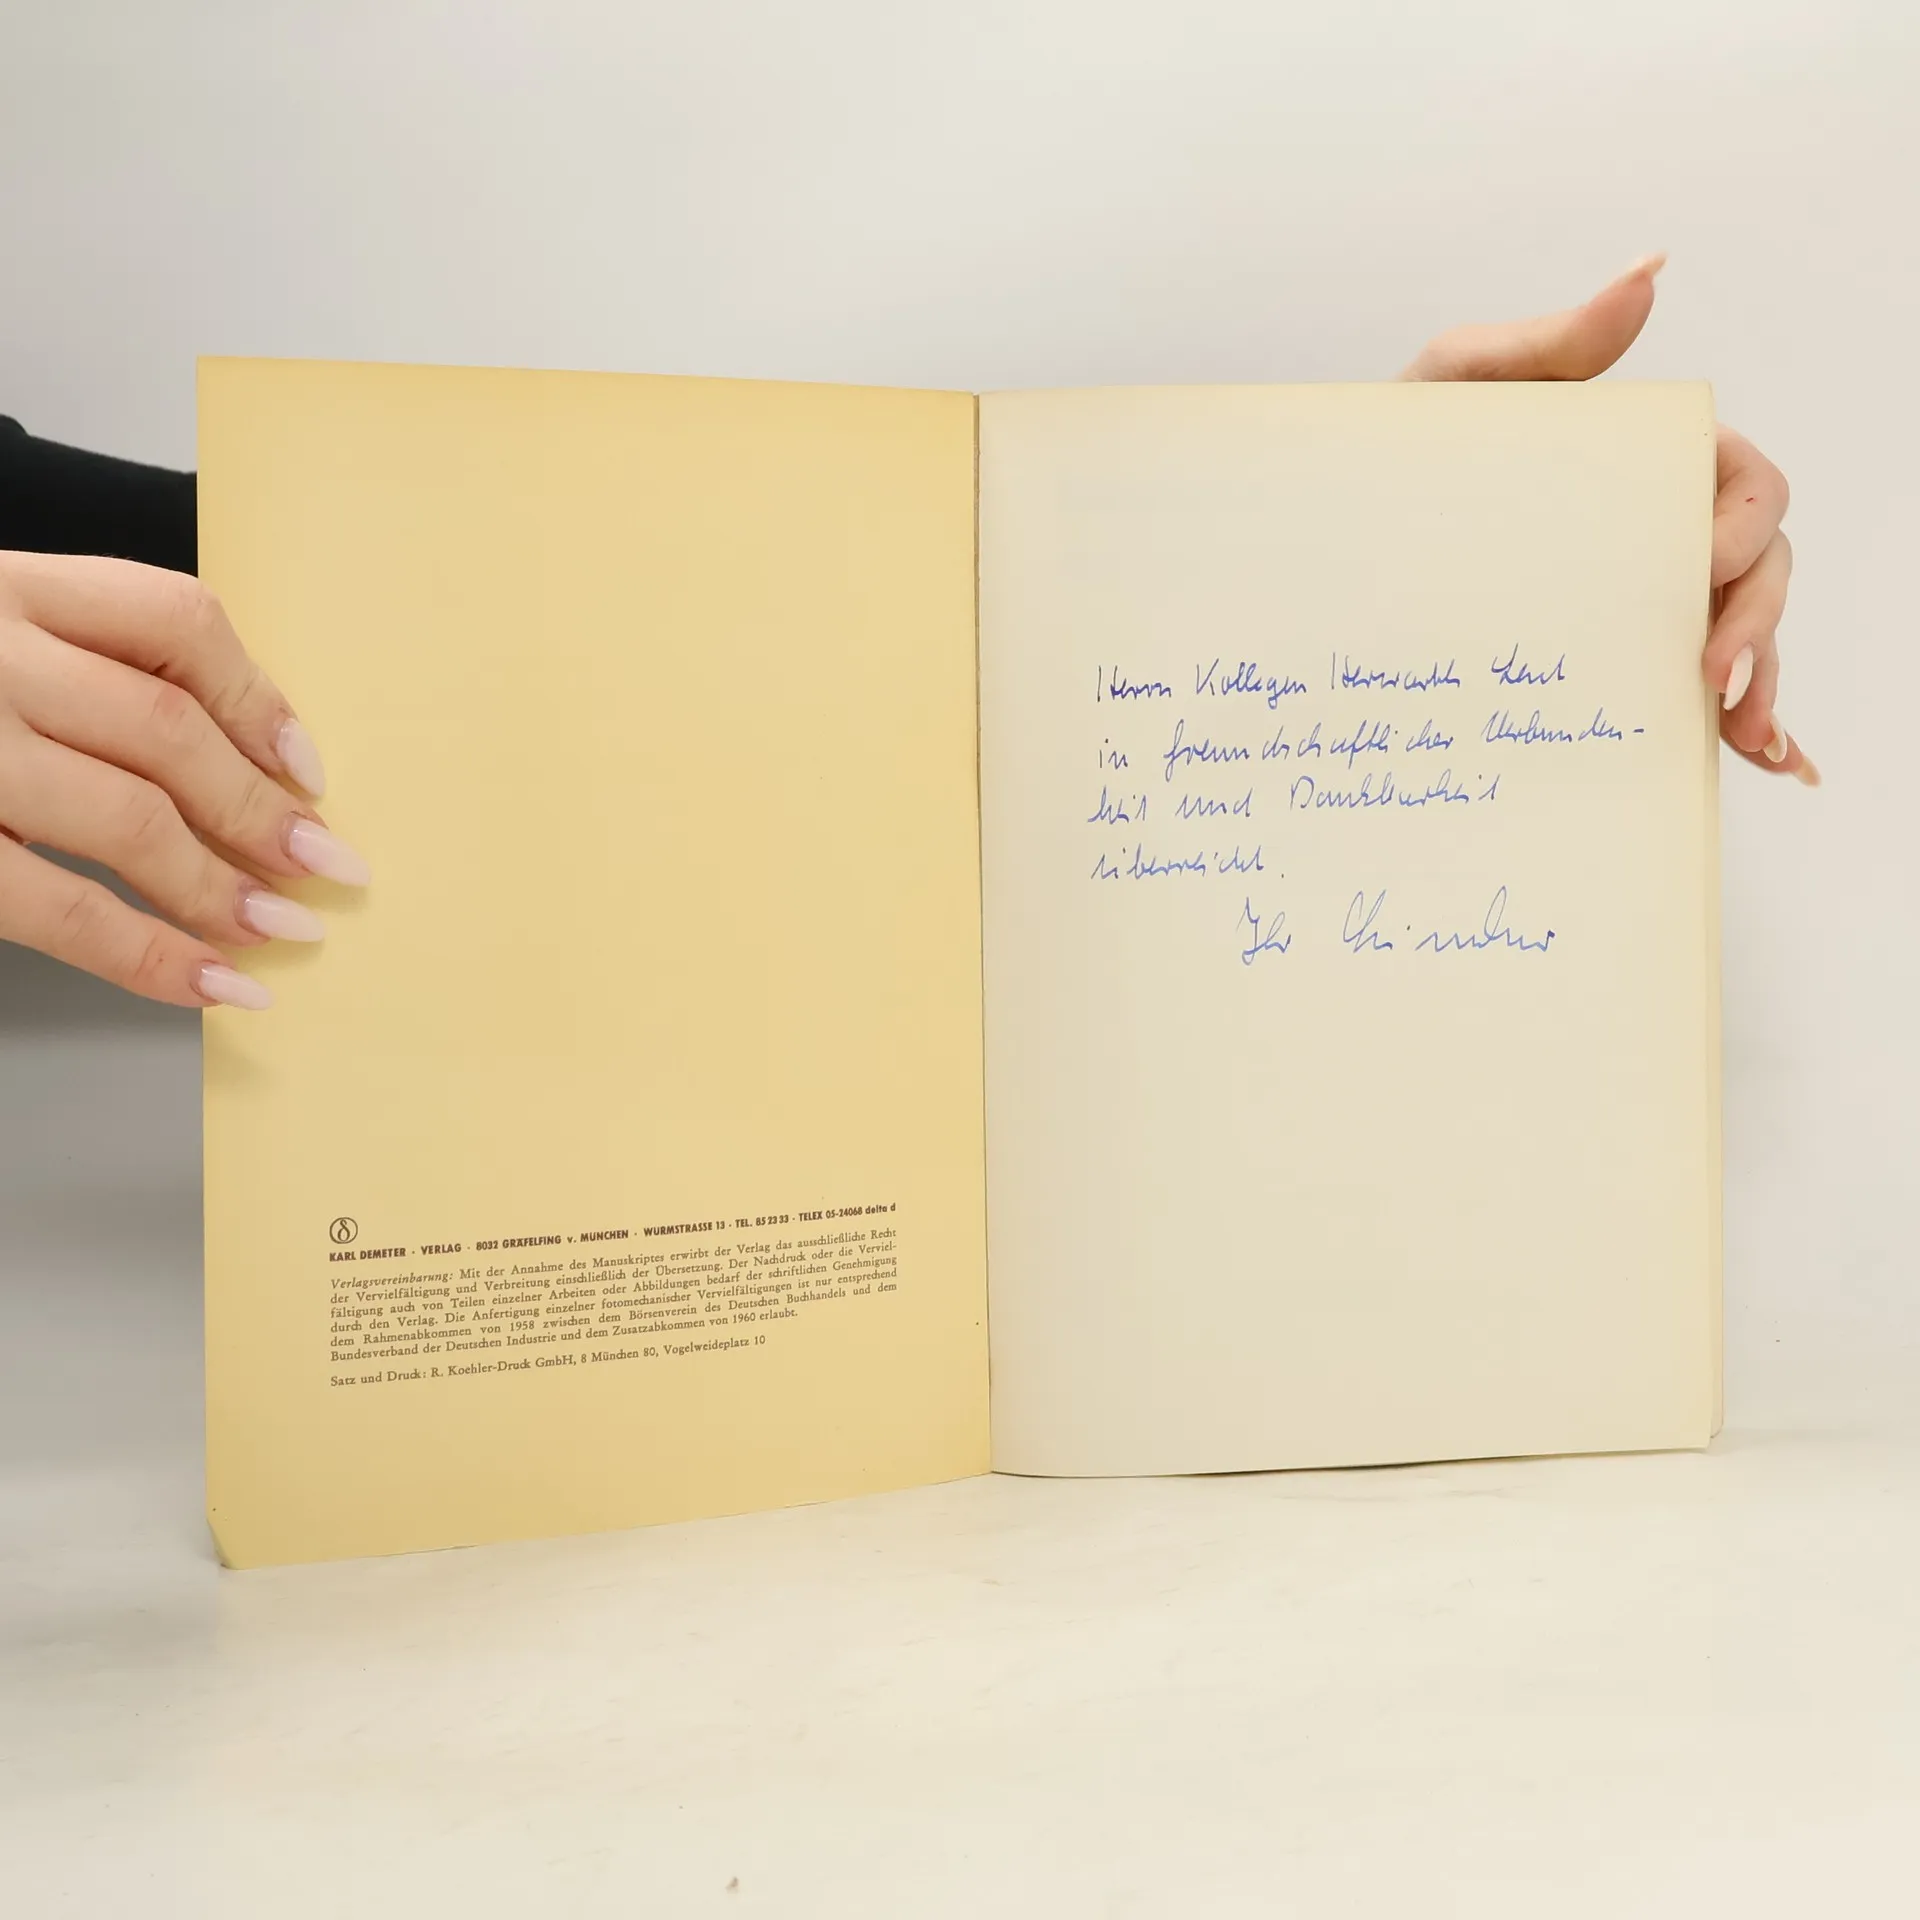 KARL DEMETER · VERLAG · 8032 GRÄFELFING v. MÜNCHEN · WÜRMSTRASSE 13 · TEL. 85 23 33 · TELEX 05-24068 delta d
Verlagsvereinbarung: Mit der Annahme des Manuskriptes erwirbt der Verlag das ausschließliche Recht
der Vervielfältigung und Verbreitung einschließlich der Übersetzung. Der Nachdruck oder die Verviel-
fältigung auch von Teilen einzelner Arbeiten oder Abbildungen bedarf der schriftlichen Genehmigung
durch den Verlag. Die Anfertigung einzelner fotomechanischer Vervielfältigungen ist nur entsprechend
dem Rahmenabkommen von 1958 zwischen dem Börsenverein des Deutschen Buchhandels und dem
Bundesverband der Deutschen Industrie und dem Zusatzabkommen von 1960 erlaubt.
Satz und Druck: R. Koehler-Druck GmbH, 8 München 80, Vogelweideplatz 10
Herrn Kollegen Herwarth
in freundschaftlicher Verbunden-
heit und Dankbarkeit
überreicht.
Ihr